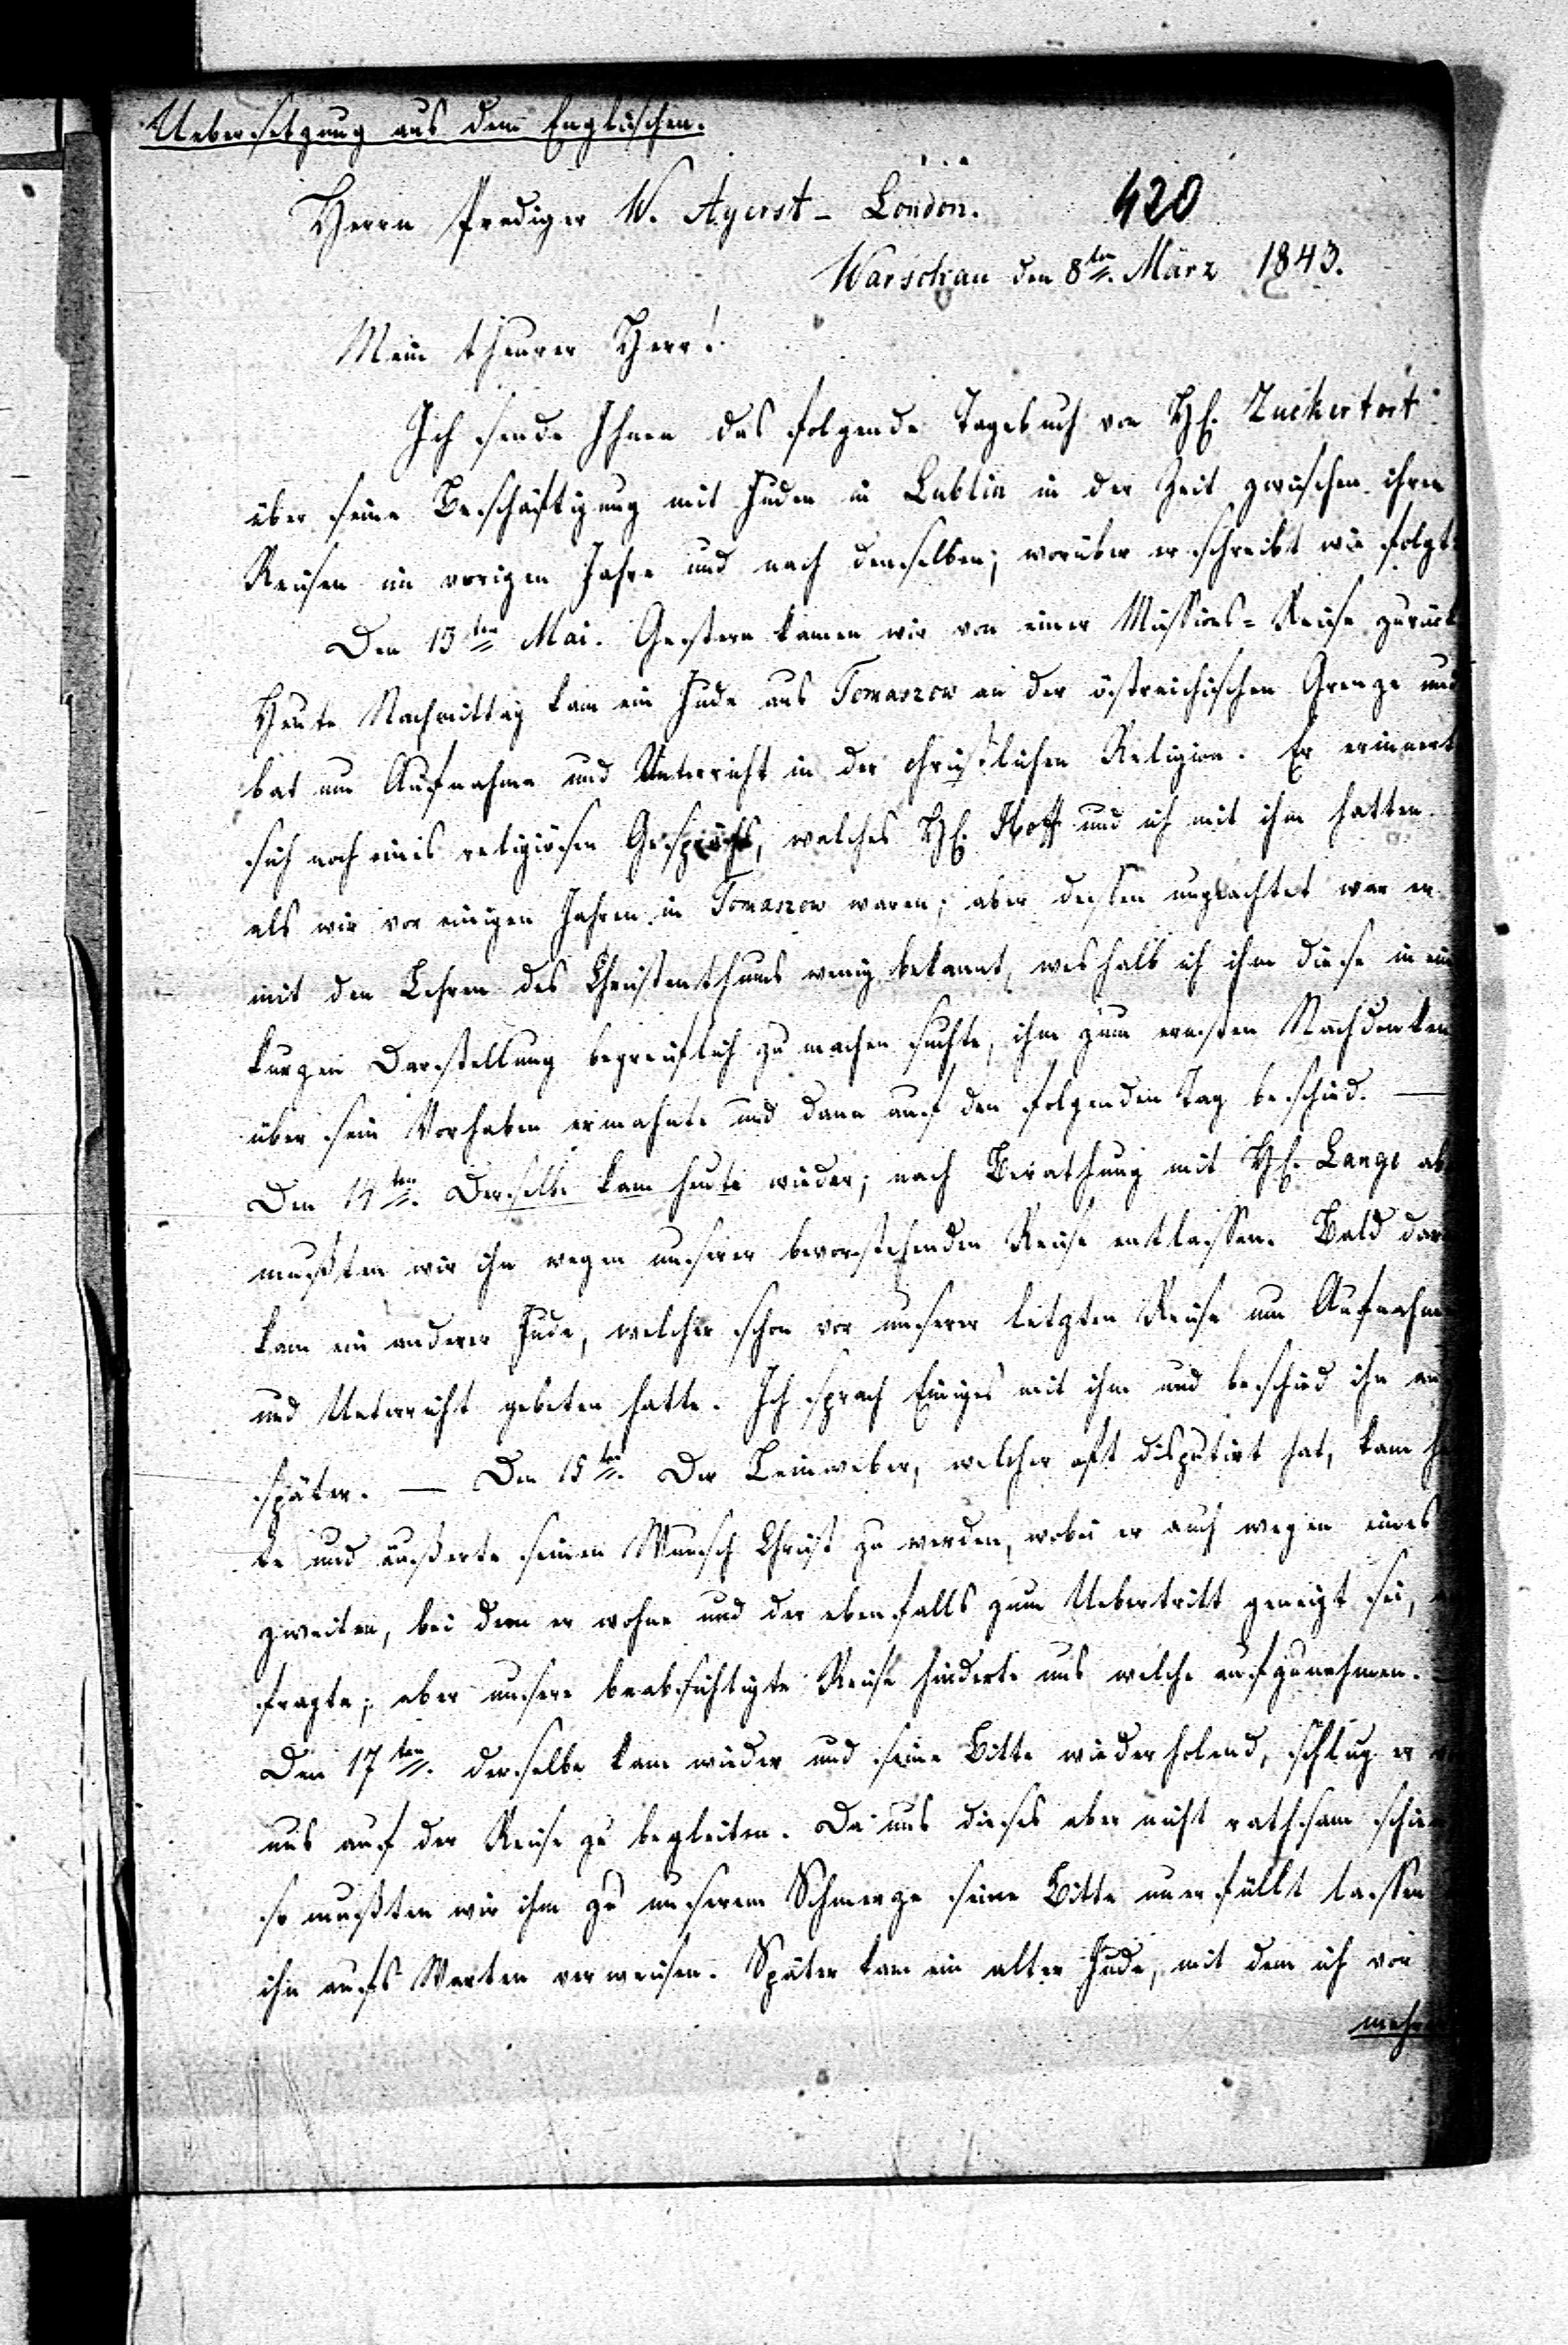 Uebersetzung aus dem Englischen.
Herrn Prediger W. Ayerst – London.
420
Warschau den 8ten März 1843.
Mein theurer Herr!
Ich sende Ihnen das folgende Tagebuch von H. Zuckertort
über seine Beschäftigung mit Juden in Lublin in der Zeit zwischen ihren
Reisen im vorigen Jahre und nach denselben; worüber er schreibt wie folgt:
Den 13ten Mai. Gestern kamen wir von einer Missions-Reise zurück
Heute Nachmittag kam ein Jude aus Tomaszow an der östreichischen Grenze und
bat um Aufnahme und Unterricht in der christlichen Religion. Er erinnert
sich noch eines religiösen Gesprächs, welches H. Hoff und ich mit ihm hatten
als wir vor einigen Jahren in Tomaszow waren; aber dessen ungeachtet war er
mit den Lehren des Christenthums wenig bekannt, weshalb ich ihm diese in ein
kurzen Darstellung begreiflich zu machen suchte, ihn zum ernsten Nachdenken
über sein Vorhaben ermahnte und dann auf den folgenden Tag beschied. —
Den 14ten. Derselbe kam heute wieder; nach Berathung mit H. Lange ab
mußten wir ihn wegen unserer bevorstehenden Reise entlassen. Bald dar
kam ein anderer Jude, welcher schon vor unserer letzten Reise um Aufnahme
und Unterricht gebeten hatte. Ich sprach Einiges mit ihm und beschied ihn au
später. — Den 15ten. Der Leinweber, welcher oft disputirt hat, kam he
te und äußerte seinen Wunsch Christ zu werden, wobei er auch wegen eines
zweiten, bei dem er wohne und der ebenfalls zum Uebertritt geneigt sei,
fragte; aber unsere beabsichtigte Reise hinderte uns welche aufzunehmen.
Den 17ten. derselbe kam wieder und seine Bitte wiederholend, schlug er
uns auf der Reise zu begleiten. Da uns dieses aber nicht rathsam schien
so mußten wir ihm zu unserem Schmerze seine Bitte unerfüllt lassen
ihn aufs Warten verweisen. Später kam ein alter Jude, mit dem ich vor
mehre